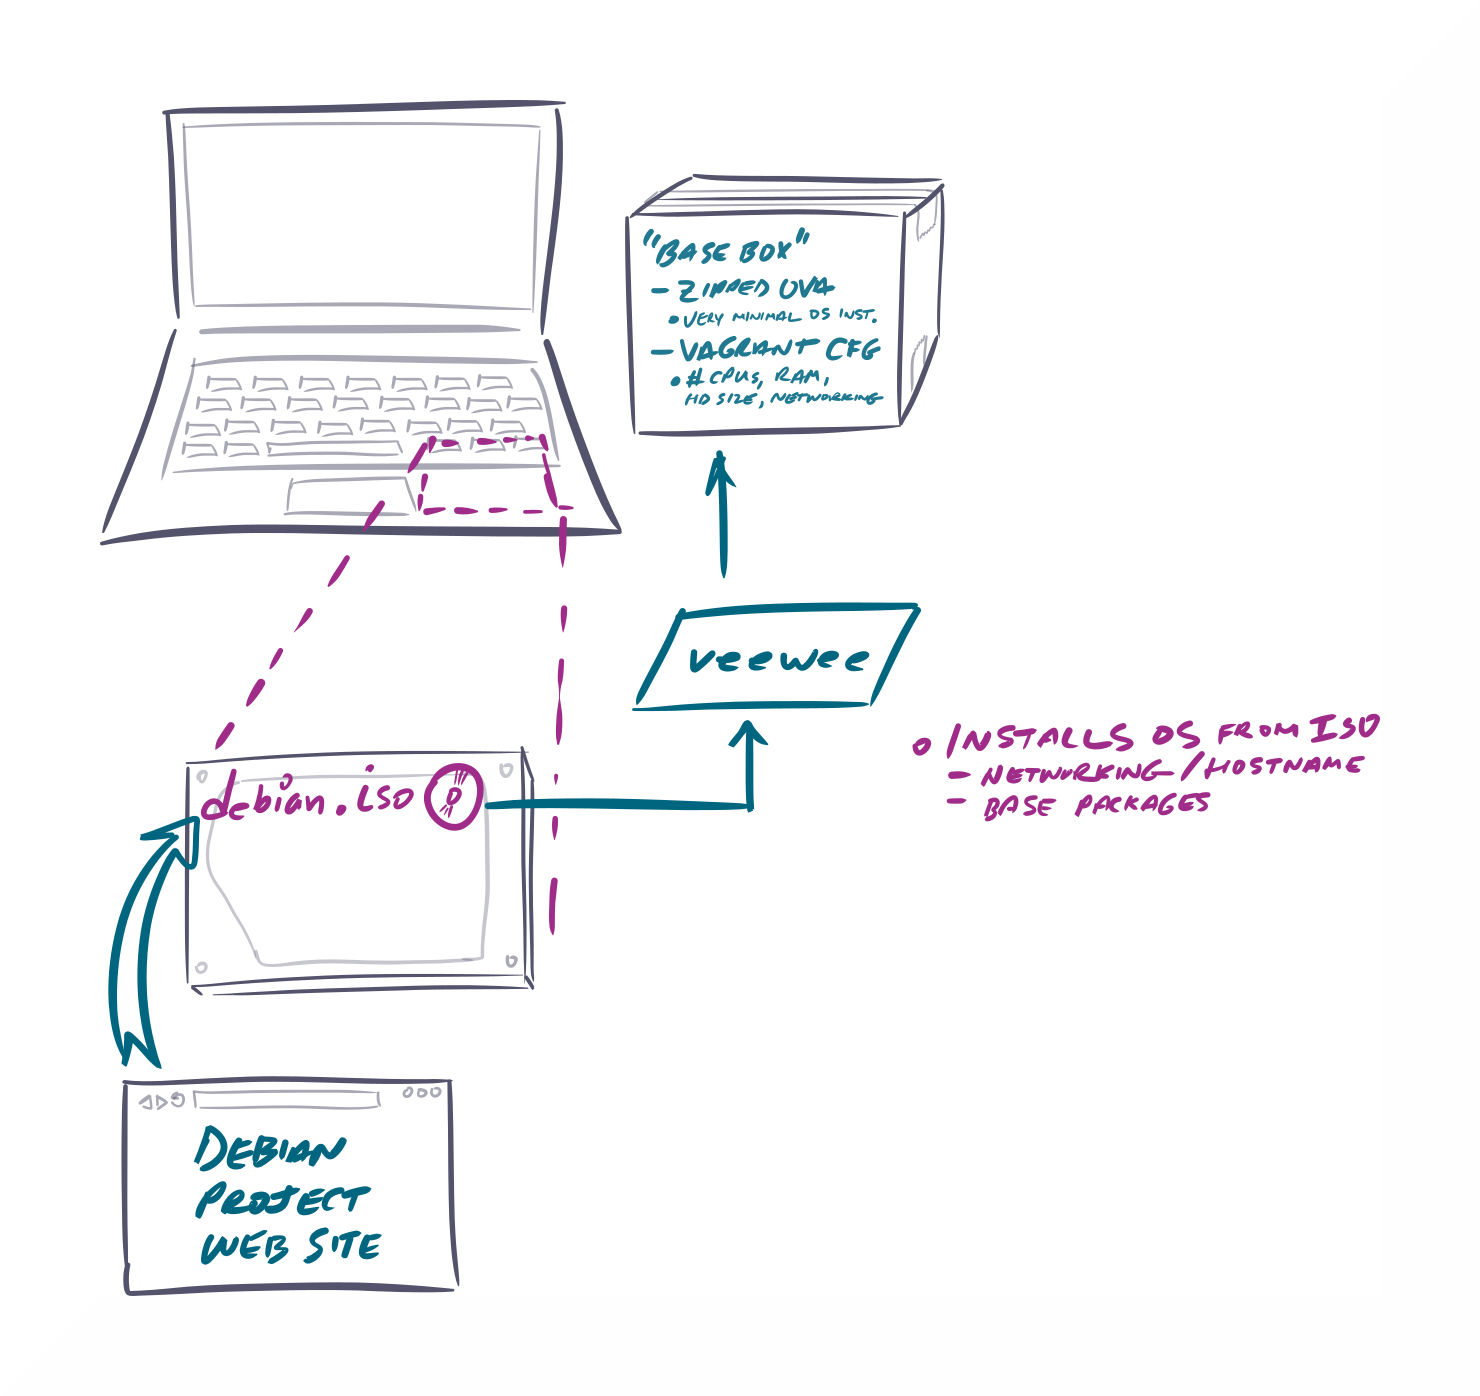 "BASE BOX"
- ZIPPED OVA
• VERY MINIMAL OS INST.
- VAGRANT CFG
• # CPUS, RAM,
HD SIZE, NETWORKING
veewee
o INSTALLS OS FROM ISO
- NETWORKING/HOSTNAME
- BASE PACKAGES
debian.iso
DEBIAN
PROJECT
WEB SITE